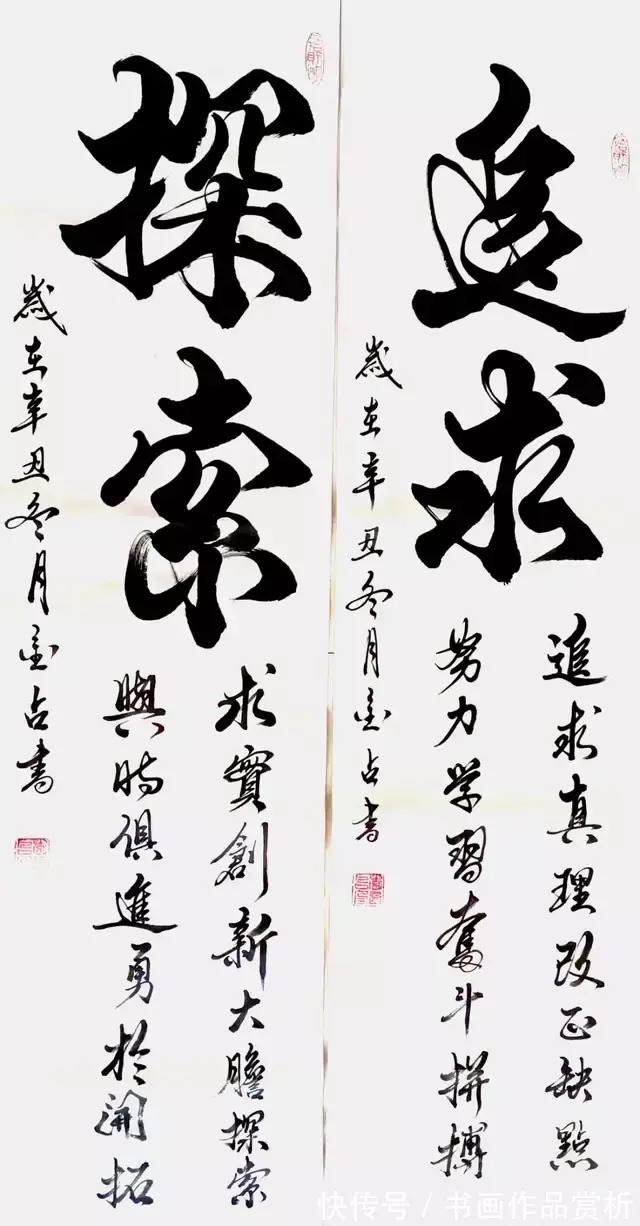 追求
追求真理改正缺點
努力学習奮斗拼搏
歲在辛丑冬月占書
探索
求實創新大膽探索
與時俱進勇於開拓
歲在辛丑冬月占書
快传号 / 书画作品赏析